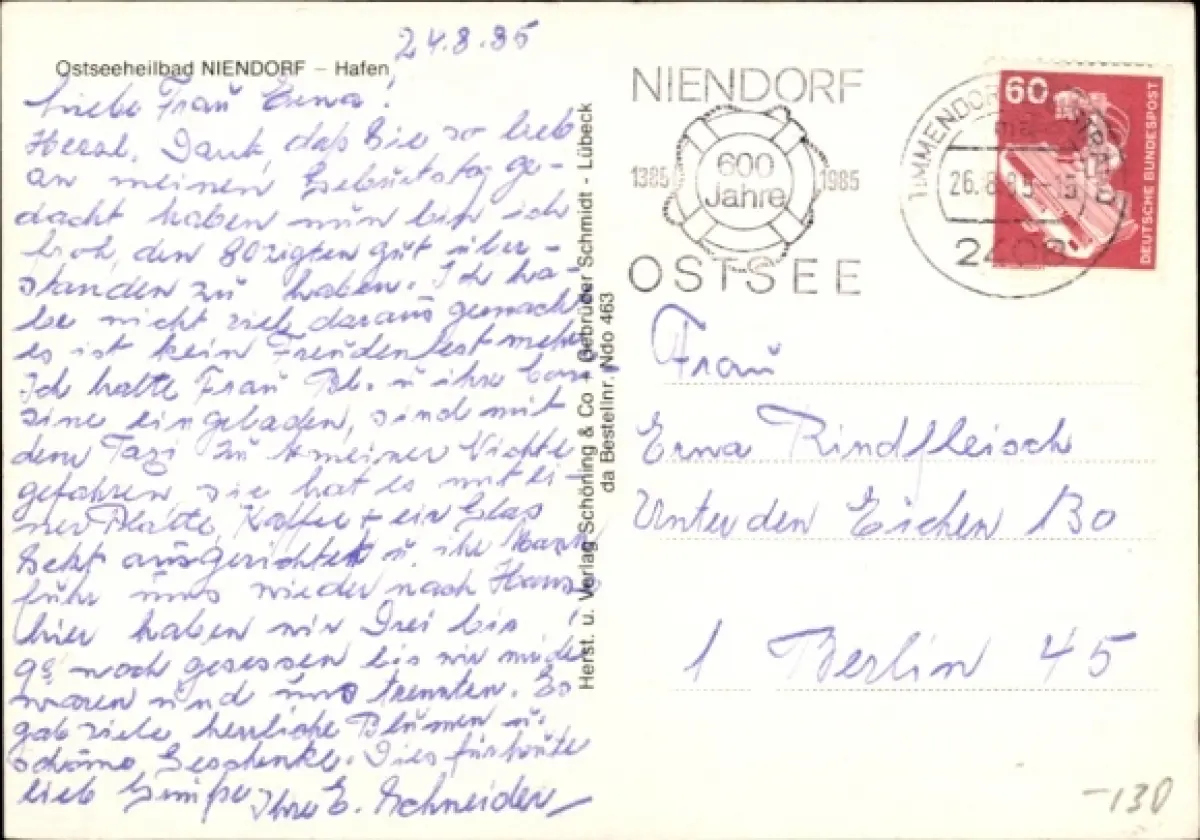 24.8.85
Ostseeheilbad NIENDORF – Hafen
Liebe Frau Erna!
Herzl. Dank, daß Sie so lieb
an meinen Geburtstag ge-
dacht haben nun bin ich
froh, den 80zigten gut über-
standen zu haben. Ich ha-
be nicht viel daraus gemacht
es ist kein Freudenfest mehr
Ich hatte Frau Bl. u ihre Cou-
sine eingeladen, sind mit
dem Taxi zu meiner Nichte
gefahren, sie hat es mit ei-
ner Platte, Kaffee + ein Glas
Sekt ausgerichtet u. ihr
fuhr uns wieder nach Haus
hier haben wir Drei bis
noch gesessen bis wir müde
waren und uns trennten. Es
gab viele herrliche Blumen u.
schöne Geschenke. Dies für heute
lieb Grüße Ihre E. Schneider
Herst. u. Verlag Schöning & Co + Gebrüder Schmidt - Lübeck
da Bestellnr. Ndo 463
NIENDORF
1385 600 Jahre 1985
OSTSEE
TIMMENDORFER STRAND
26.8.85-15
2408
60
DEUTSCHE BUNDESPOST
Frau
Erna Rindfleisch
Unter den Eichen 130
1 Berlin 45
-130